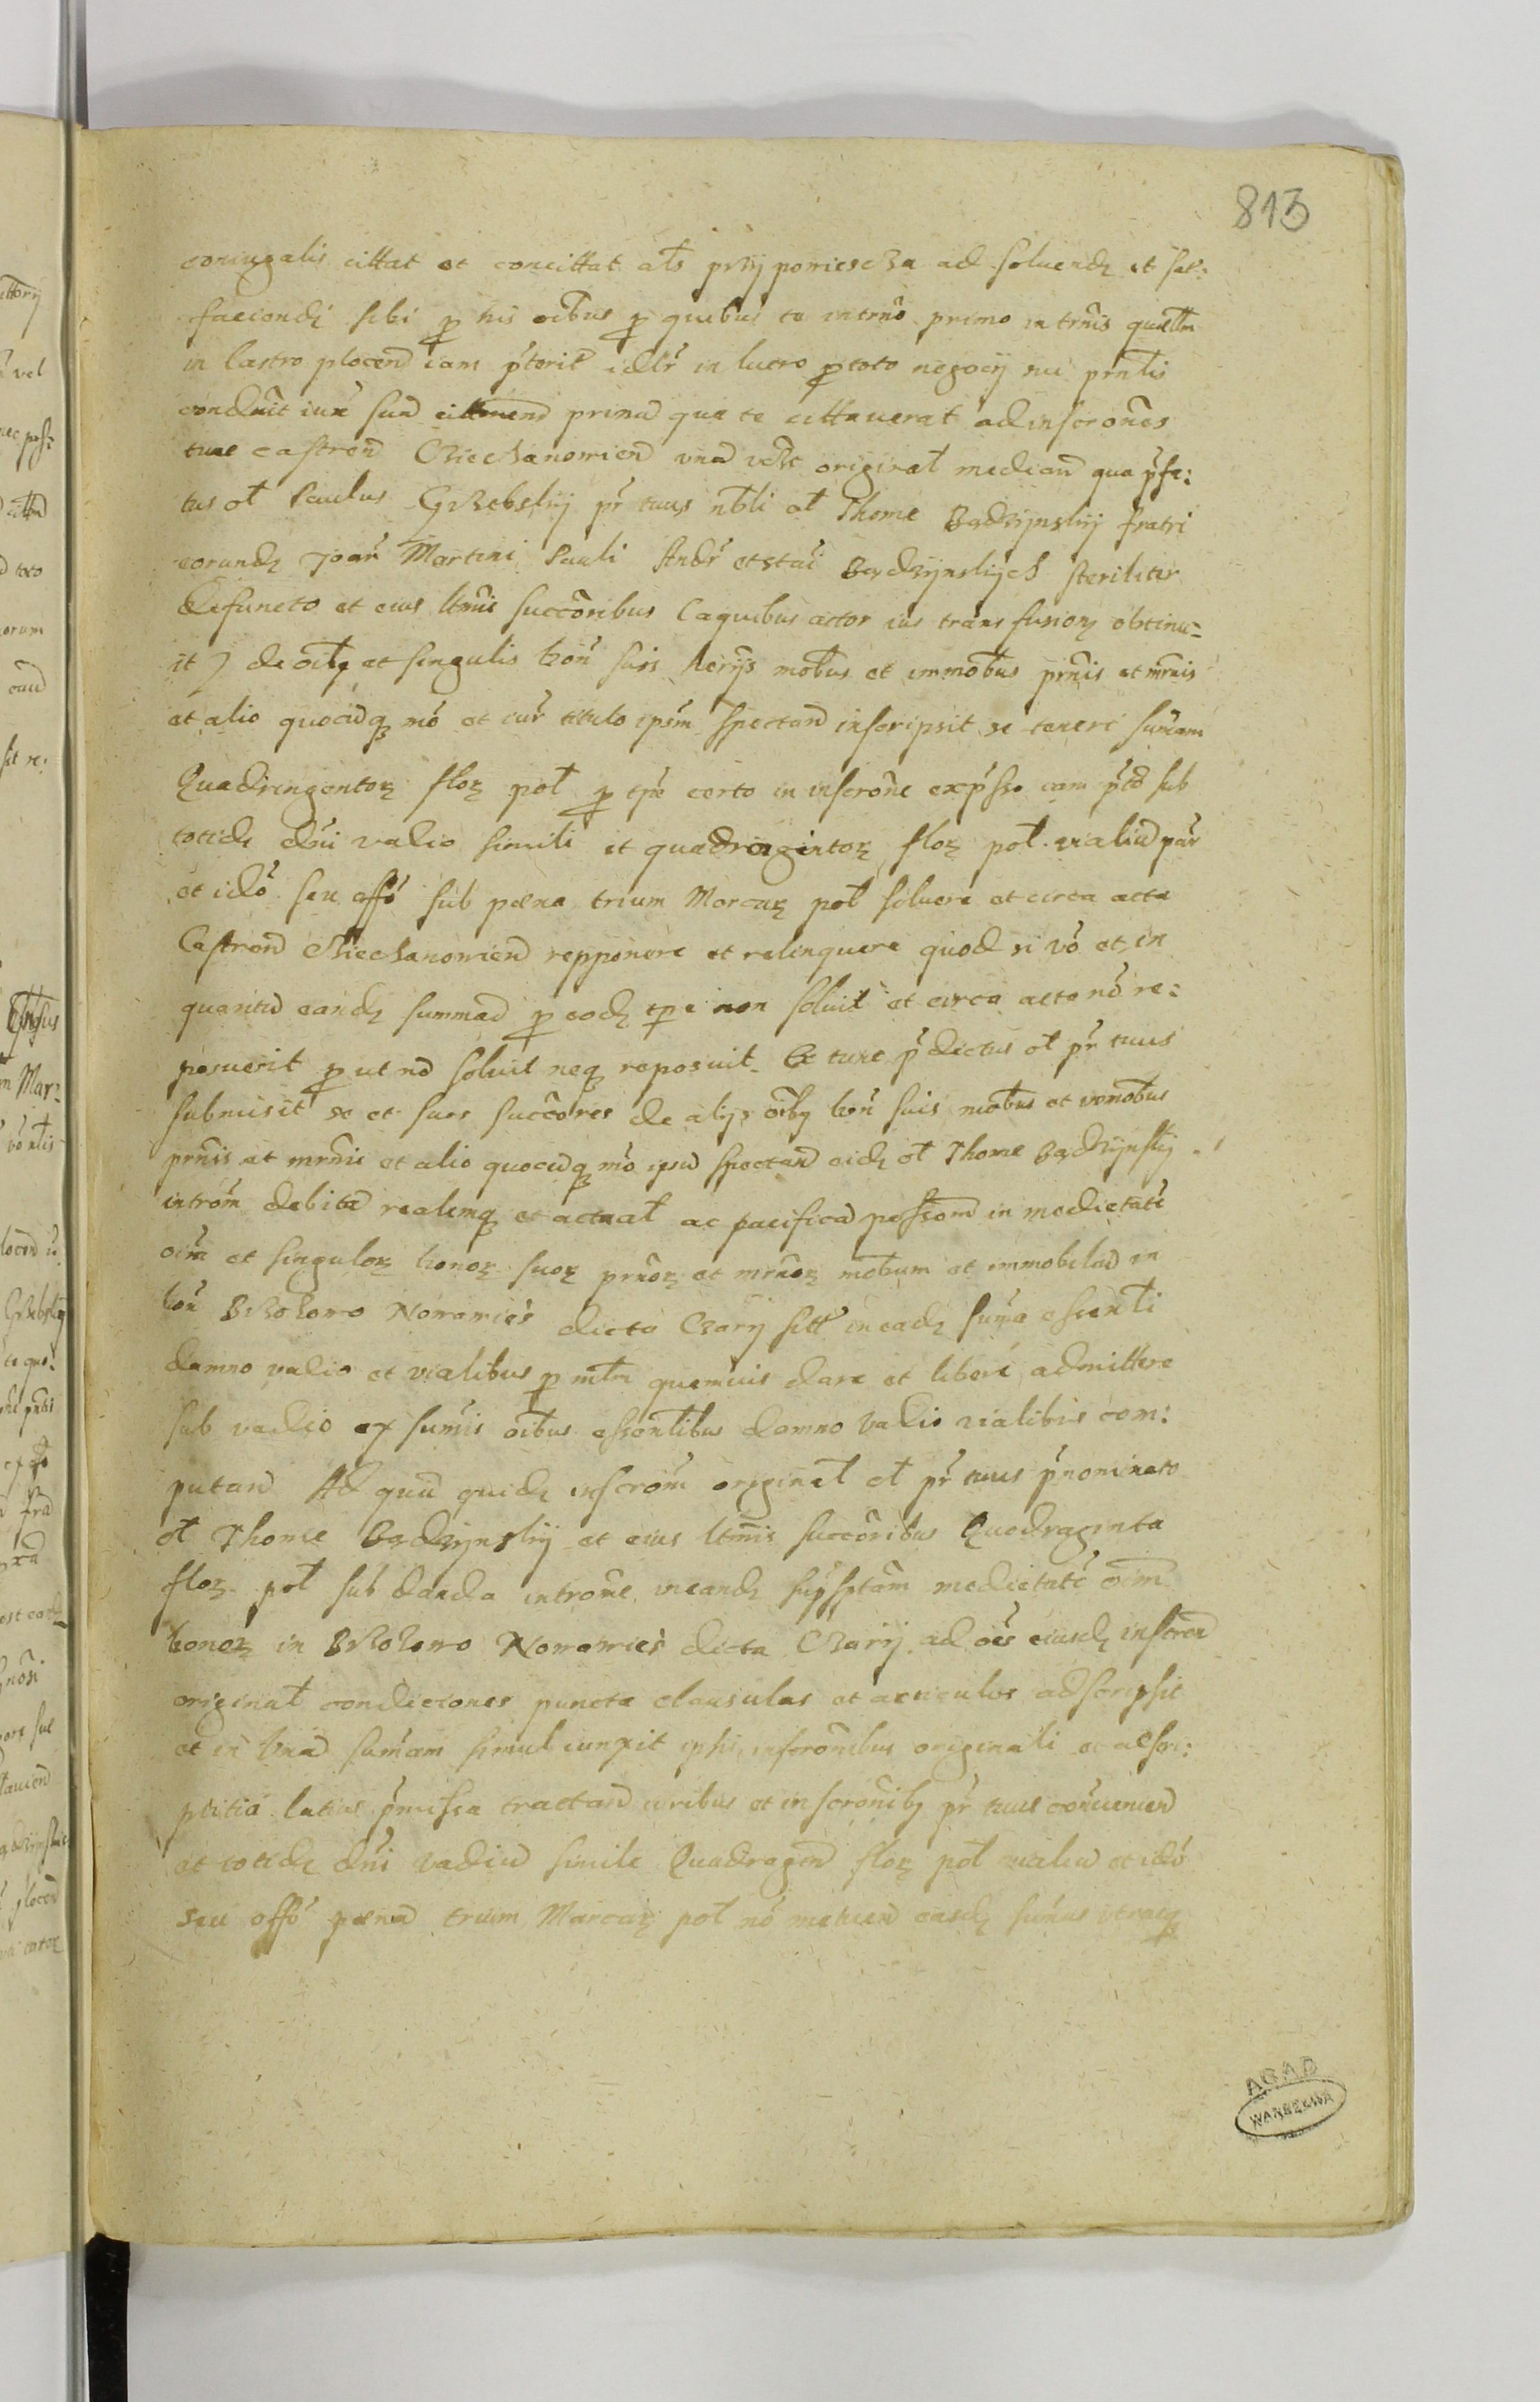 813
coniugalis cittat et concittat als przypowiescza ad soluendȝ et sat:
faciendȝ sibi ꝑ his oibus ꝑ quibus tu in trno primo in trnis quertm
in Castro plocen iam pterit idtr in lucro ꝑ toto negocij sui prntis
condnit iuxe sua cittmend primu qua te cittauerat ad inscrones
tuae castren Cziechanowien vna vdlt original median qua pfa:
tus ol Paulus Grzebskij pr tuus nbli ol Thome Bądzÿnskij fratri
eorundȝ Joan Martini Pauli Andr et stai Bądzÿnskijch steriliter
defuncto et eius ltmis succoribus (a quibus actor ius transfusionȝ obtinu-
it) de oibȝ et singulis bon suis herijs mobus et immobus prnis et mrnis
et alio quocudqȝ mo et iur titulo ipsm spectan inscripsit se teneri sumam
Quadringentorȝ florȝ pol ꝑ tpe certo in inscrone expsso iam ptto sub
totidȝ dni vadio simili et quadragintorȝ florȝ pol vialiu par
et ido seu offo sub poena trium Marcarȝ pol soluere et circa acta
Castren Cziechanowien repponere et relinquere quod si vo et in
quantu eandȝ summad ꝑ eodȝ tpe non soluit et circa acta no re:
posuerit ꝑ ut no soluit neqȝ reposuit. Ex tunc pdictus ol pr tuus
submisit se et suos succores de alijs oibȝ bon suis mobus et immobus
prnis et mrnis et alio quocudqȝ mo ipsu spectan eidȝ ol Thome Bądzÿnskij
introm debita realemqȝ et actual ac pacifica possom in medietate
oim et singulorȝ bonorȝ suorȝ prnorȝ et mrnorȝ mobum et immobiliu in
bon Brzozowo Nowawies dicta Czarij sitt in eadȝ suma essentli
damno vadio et vialibus ꝑ mtm quemuis dare et libere admittere
sub vadio ex sumis oibus essentlibus damno vadio vialibus com:
putand Ad qua quidȝ inscrom original ol pr tuus pnominato
ol Thome Bądzÿnskij et eius ltmis succoribus Quadraginta
florȝ pol sub danda introne in eandȝ supsptam medietate oim
bonorȝ in Brzozowo Nowawies dicta Czarij ad oes eiusdȝ inscron
original condiciones puncta clausulas et articulos adscripsit
et in vna sumam simul iunxit ipsis inscronibus originali et adscri:
ptitia latius pmissa tractan iuribus et inscronibȝ pr tuus conuenien
et totidȝ dni vadiu simile Quadragen florȝ pol vialiu et ido
seu offo poena trium Marcarȝ pol no metuen easdȝ sumas vtrasqȝ
AGAD
WARSZAWA